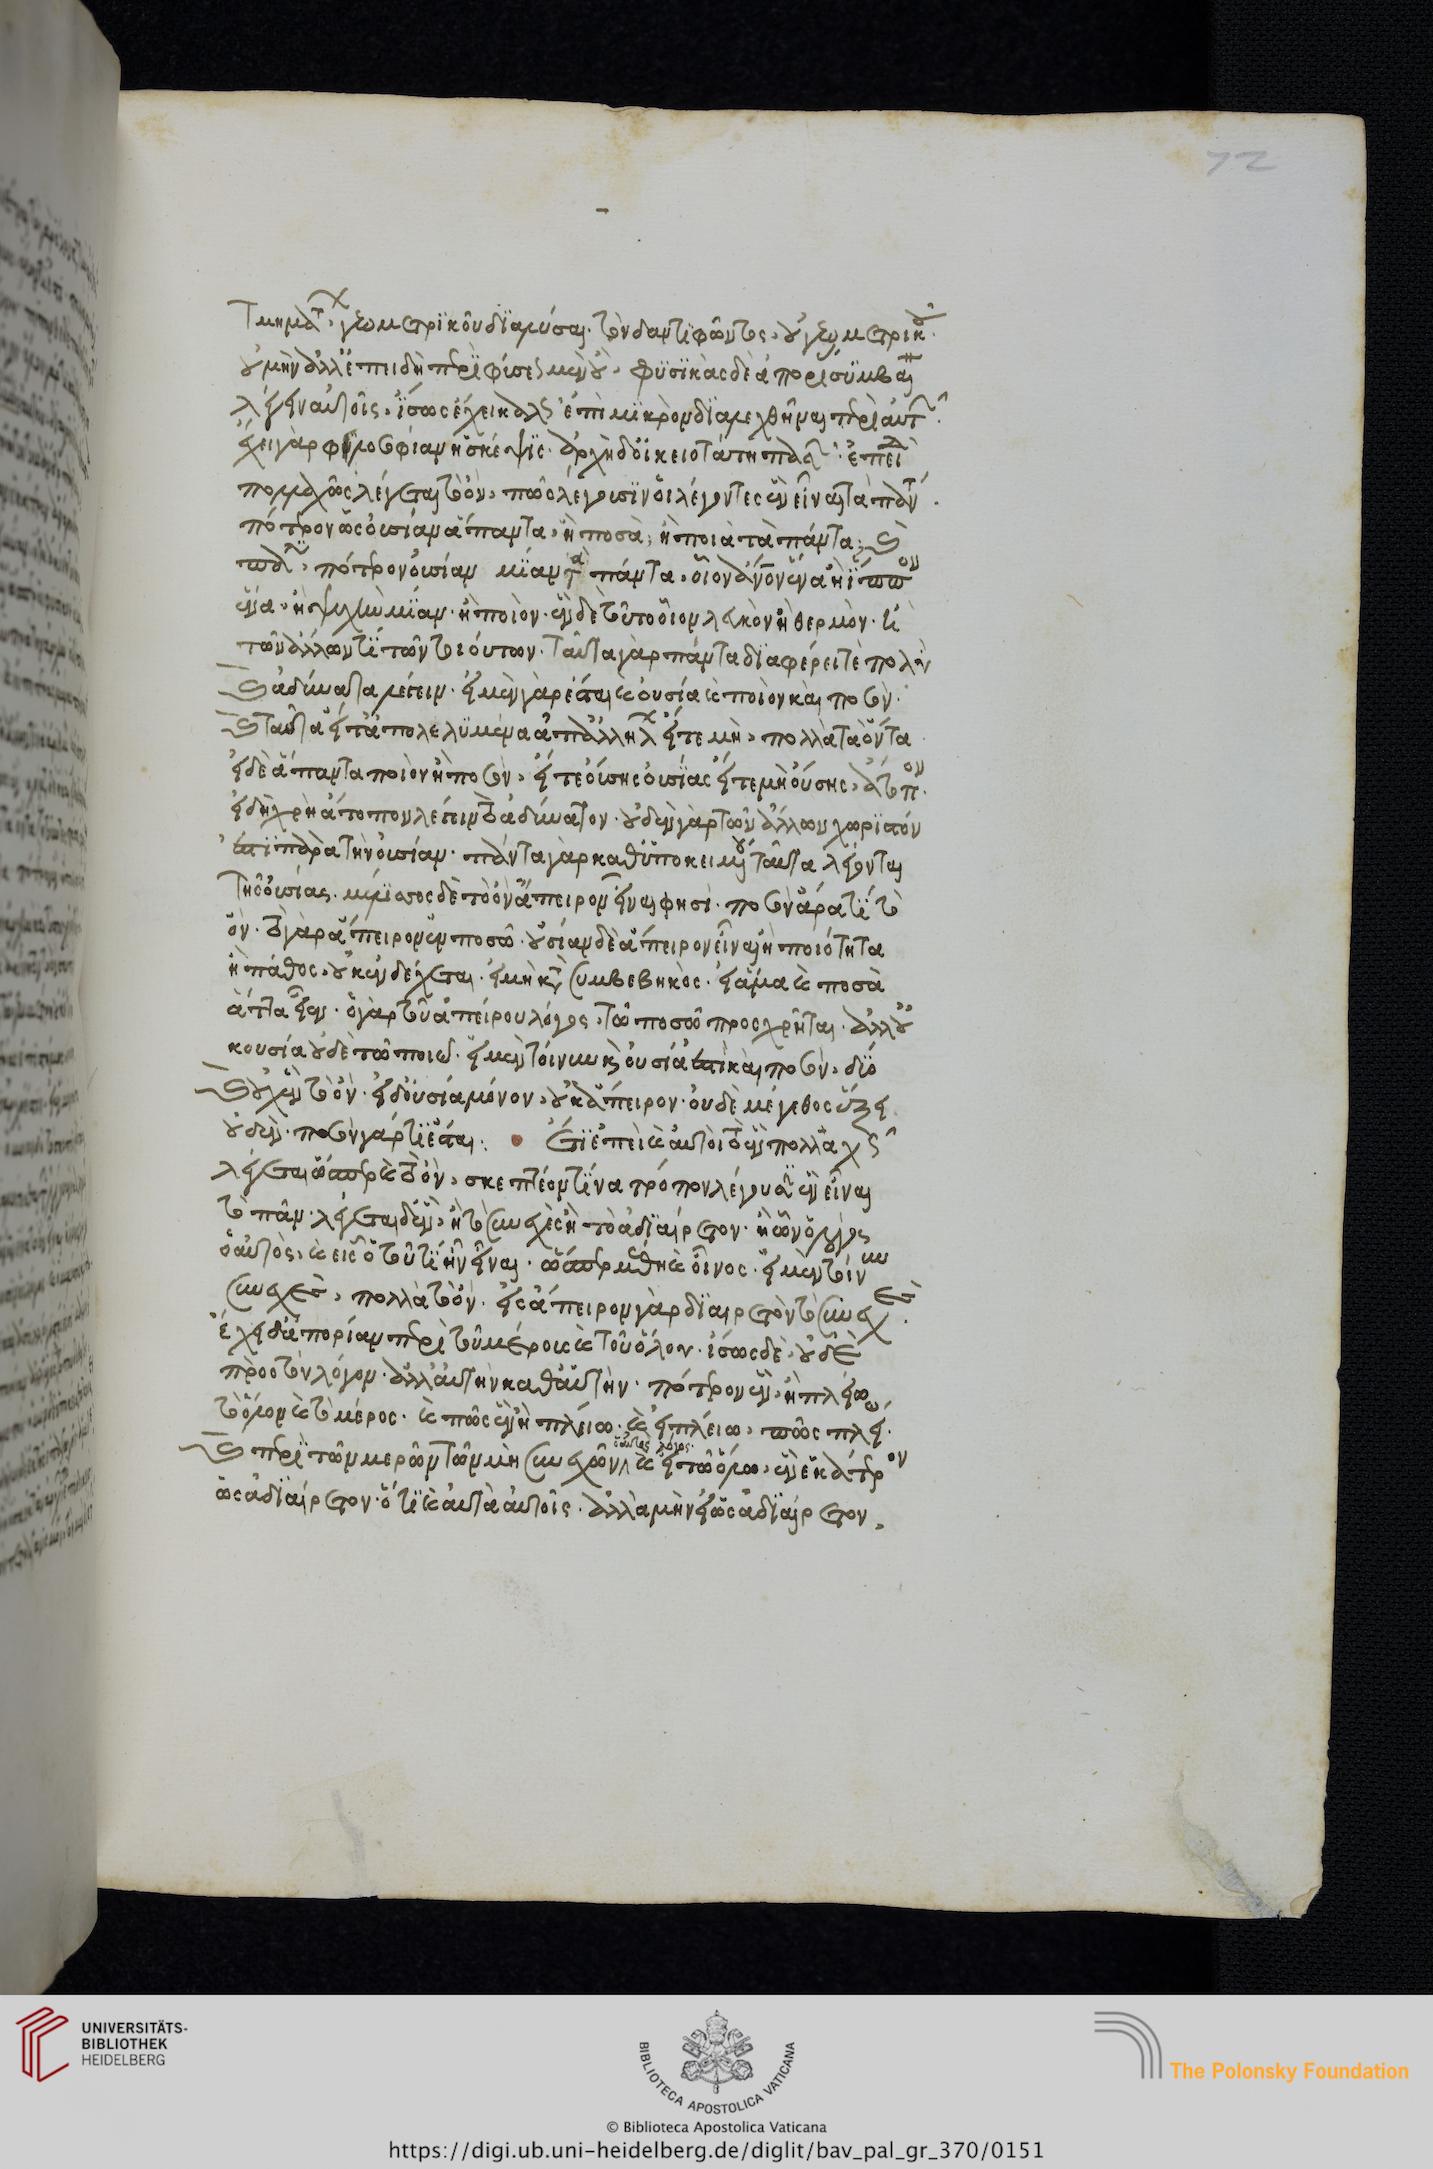 τμημάτων, γεωμετρικοῦ διαλῦσαι. τὸν δ' ἀντιφῶντος, οὐ γεωμετρικοῦ.
οὐ μὴν ἀλλ' ἐπειδὴ περὶ φύσεως μὲν οὐ, φυσικὰς δὲ ἀπορίας συμβαίνει
λέγειν αὐτοῖς, ἴσως ἔχει καλῶς ἐπὶ μικρὸν διαλεχθῆναι περὶ αὐτῶν.
ἔχει γὰρ φιλοσοφίαν ἡ σκέψις. ἀρχὴ δ' οἰκειοτάτη πασῶν. ἐπειδὴ
πολλαχῶς λέγεται τὸ ὄν, πῶς λέγουσιν οἱ λέγοντες ἓν εἶναι τὰ πάντα.
πότερον ὡς οὐσίαν ἅπαντα, ἢ ποσὰ, ἢ ποιὰ τὰ πάντα; καὶ
πάλιν, πότερον οὐσίαν μίαν τὰ πάντα, οἷον ἄνθρωπον ἕνα ἢ ἵππον
ἕνα, ἢ ψυχὴν μίαν. ἢ ποιὸν. ἓν δὲ τοῦτο οἷον λευκὸν ἢ θερμὸν. ἢ
τῶν ἄλλων τι τῶν τοιούτων. ταῦτα γὰρ πάντα διαφέρει τὲ πολὺ
καὶ ἀδύνατα λέγειν. εἰ μὲν γὰρ ἔσται καὶ οὐσία καὶ ποιὸν καὶ ποσὸν.
καὶ ταῦτα εἴτ' ἀπολελυμένα ἀπ' ἀλλήλων εἴτε μὴ, πολλὰ τὰ ὄντα
εἰ δὲ ἅπαντα ποιὸν ἢ ποσὸν, εἴτε οὔσης οὐσίας εἴτε μὴ οὔσης, ἄτοπον.
εἰ δὴ χρὴ ἄτοπον λέγειν τὸ ἀδύνατον. οὐδὲν γὰρ τῶν ἄλλων χωριστόν
ἐστι παρὰ τὴν οὐσίαν. πάντα γὰρ καθ' ὑποκειμένου ταῦτα λέγονται
τῆς οὐσίας. μέλισσος δὲ τὸ ὂν ἄπειρον εἶναι φησὶ. ποσὸν ἄρα τι τὸ
ὄν. τὸ γὰρ ἄπειρον ἐν ποσῶ. οὐσίαν δὲ ἄπειρον εἶναι ἢ ποιότητα
ἢ πάθος, οὐκ ἐνδέχεται. εἰ μὴ κατὰ συμβεβηκὸς. εἰ ἅμα καὶ ποσὰ
ἄττα εἶεν. ὁ γὰρ τοῦ ἀπείρου λόγος, τῶ ποσῶ προσχρῆται. ἀλλ' οὐ
κ οὐσία οὐδὲ τῶ ποιῶ. εἰ μὲν τοίνυν καὶ οὐσία ἐστὶ καὶ ποσὸν, δύο
καὶ οὐχ ἓν τὸ ὄν. εἰ δ' οὐσία μόνον, οὐκ ἄπειρον. οὐδὲ μέγεθος ἕξει
οὐδὲν. ποσὸν γάρ τι ἔσται: Ἔτι ἐπεὶ καὶ αὐτὸ τὸ ἓν πολλαχῶς
λέγεται ὥσπερ καὶ τὸ ὄν, σκεπτέον τίνα τρόπον λέγουσιν ἓν εἶναι
τὸ πᾶν. λέγεται δ' ἓν, ἢ τὸ συνεχὲς ἢ τὸ ἀδιαίρετον. ἢ ὧν ὁ λόγος
ὁ αὐτὸς, καὶ εἷς ὁ τοῦ τί ἦν εἶναι. ὥσπερ μέθη καὶ οἶνος. εἰ μὲν τοίνυν
συνεχὲς, πολλὰ τὸ ὄν. εἰς ἄπειρον γὰρ διαιρετὸν τὸ συνεχές.
ἔχει δ' ἀπορίαν περὶ τοῦ μέρους καὶ τοῦ ὅλου. ἴσως δὲ, οὐδὲ
πρὸς τὸν λόγον. ἀλλ' αὐτὴν καθ' αὑτὴν. πότερον ἓν, ἢ πλείω
τὸ ὅλον καὶ τὸ μέρος. καὶ πῶς ἓν ἢ πλείω. καὶ εἰ πλείω, πῶς πλείω.
καὶ περὶ τῶν μερῶν τῶν μὴ συνεχῶν ὁ αὐτὸς λόγος. καὶ εἰ τῶ ὅλω, ἓν ἑκάτερον
ὡς ἀδιαίρετον. ὅτι καὶ αὐτὰ αὑτοῖς. ἀλλὰ μὴν εἰ ὡς ἀδιαίρετον,
72
UNIVERSITÄTS-
BIBLIOTHEK
HEIDELBERG
BIBLIOTECA APOSTOLICA VATICANA
© Biblioteca Apostolica Vaticana
The Polonsky Foundation
https://digi.ub.uni-heidelberg.de/diglit/bav_pal_gr_370/0151